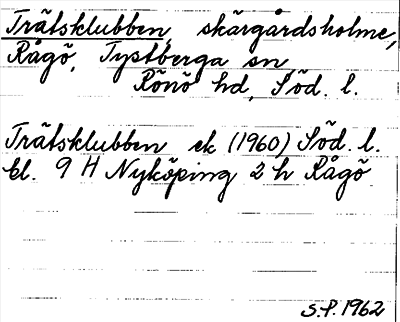 Trätsklubben, skärgårdsholme,
Rågö, Tystberga sn
Rönö hd, Söd. l.
Trätsklubben ek (1960) Söd. l.
bl. 9 H Nyköping 2 h Rågö
S.P. 1962